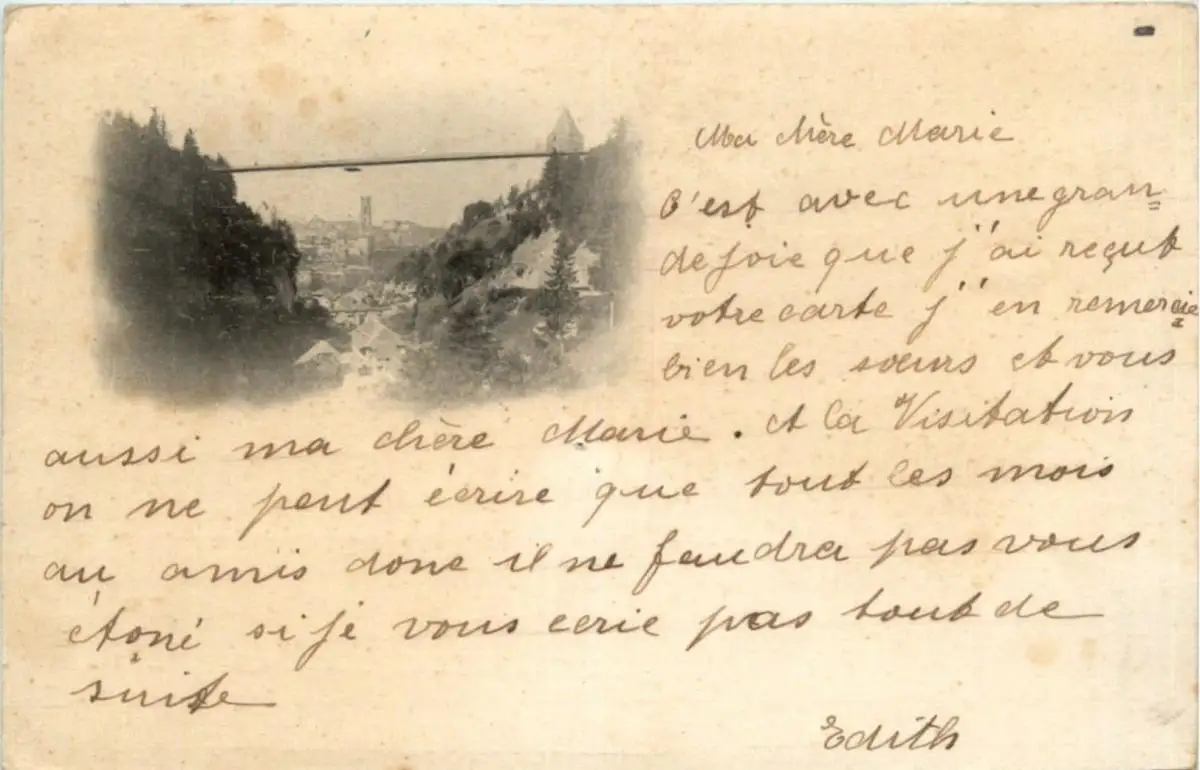 Ma chère Marie
C'est avec une gran=
de joie que j'ai reçut
votre carte j'en remercie
bien les sœurs et vous
aussi ma chère Marie. A la Visitation
on ne peut écrire que tout les mois
au amis donc il ne faudra pas vous
étoné si je vous ecrie pas tout de
suite
Edith